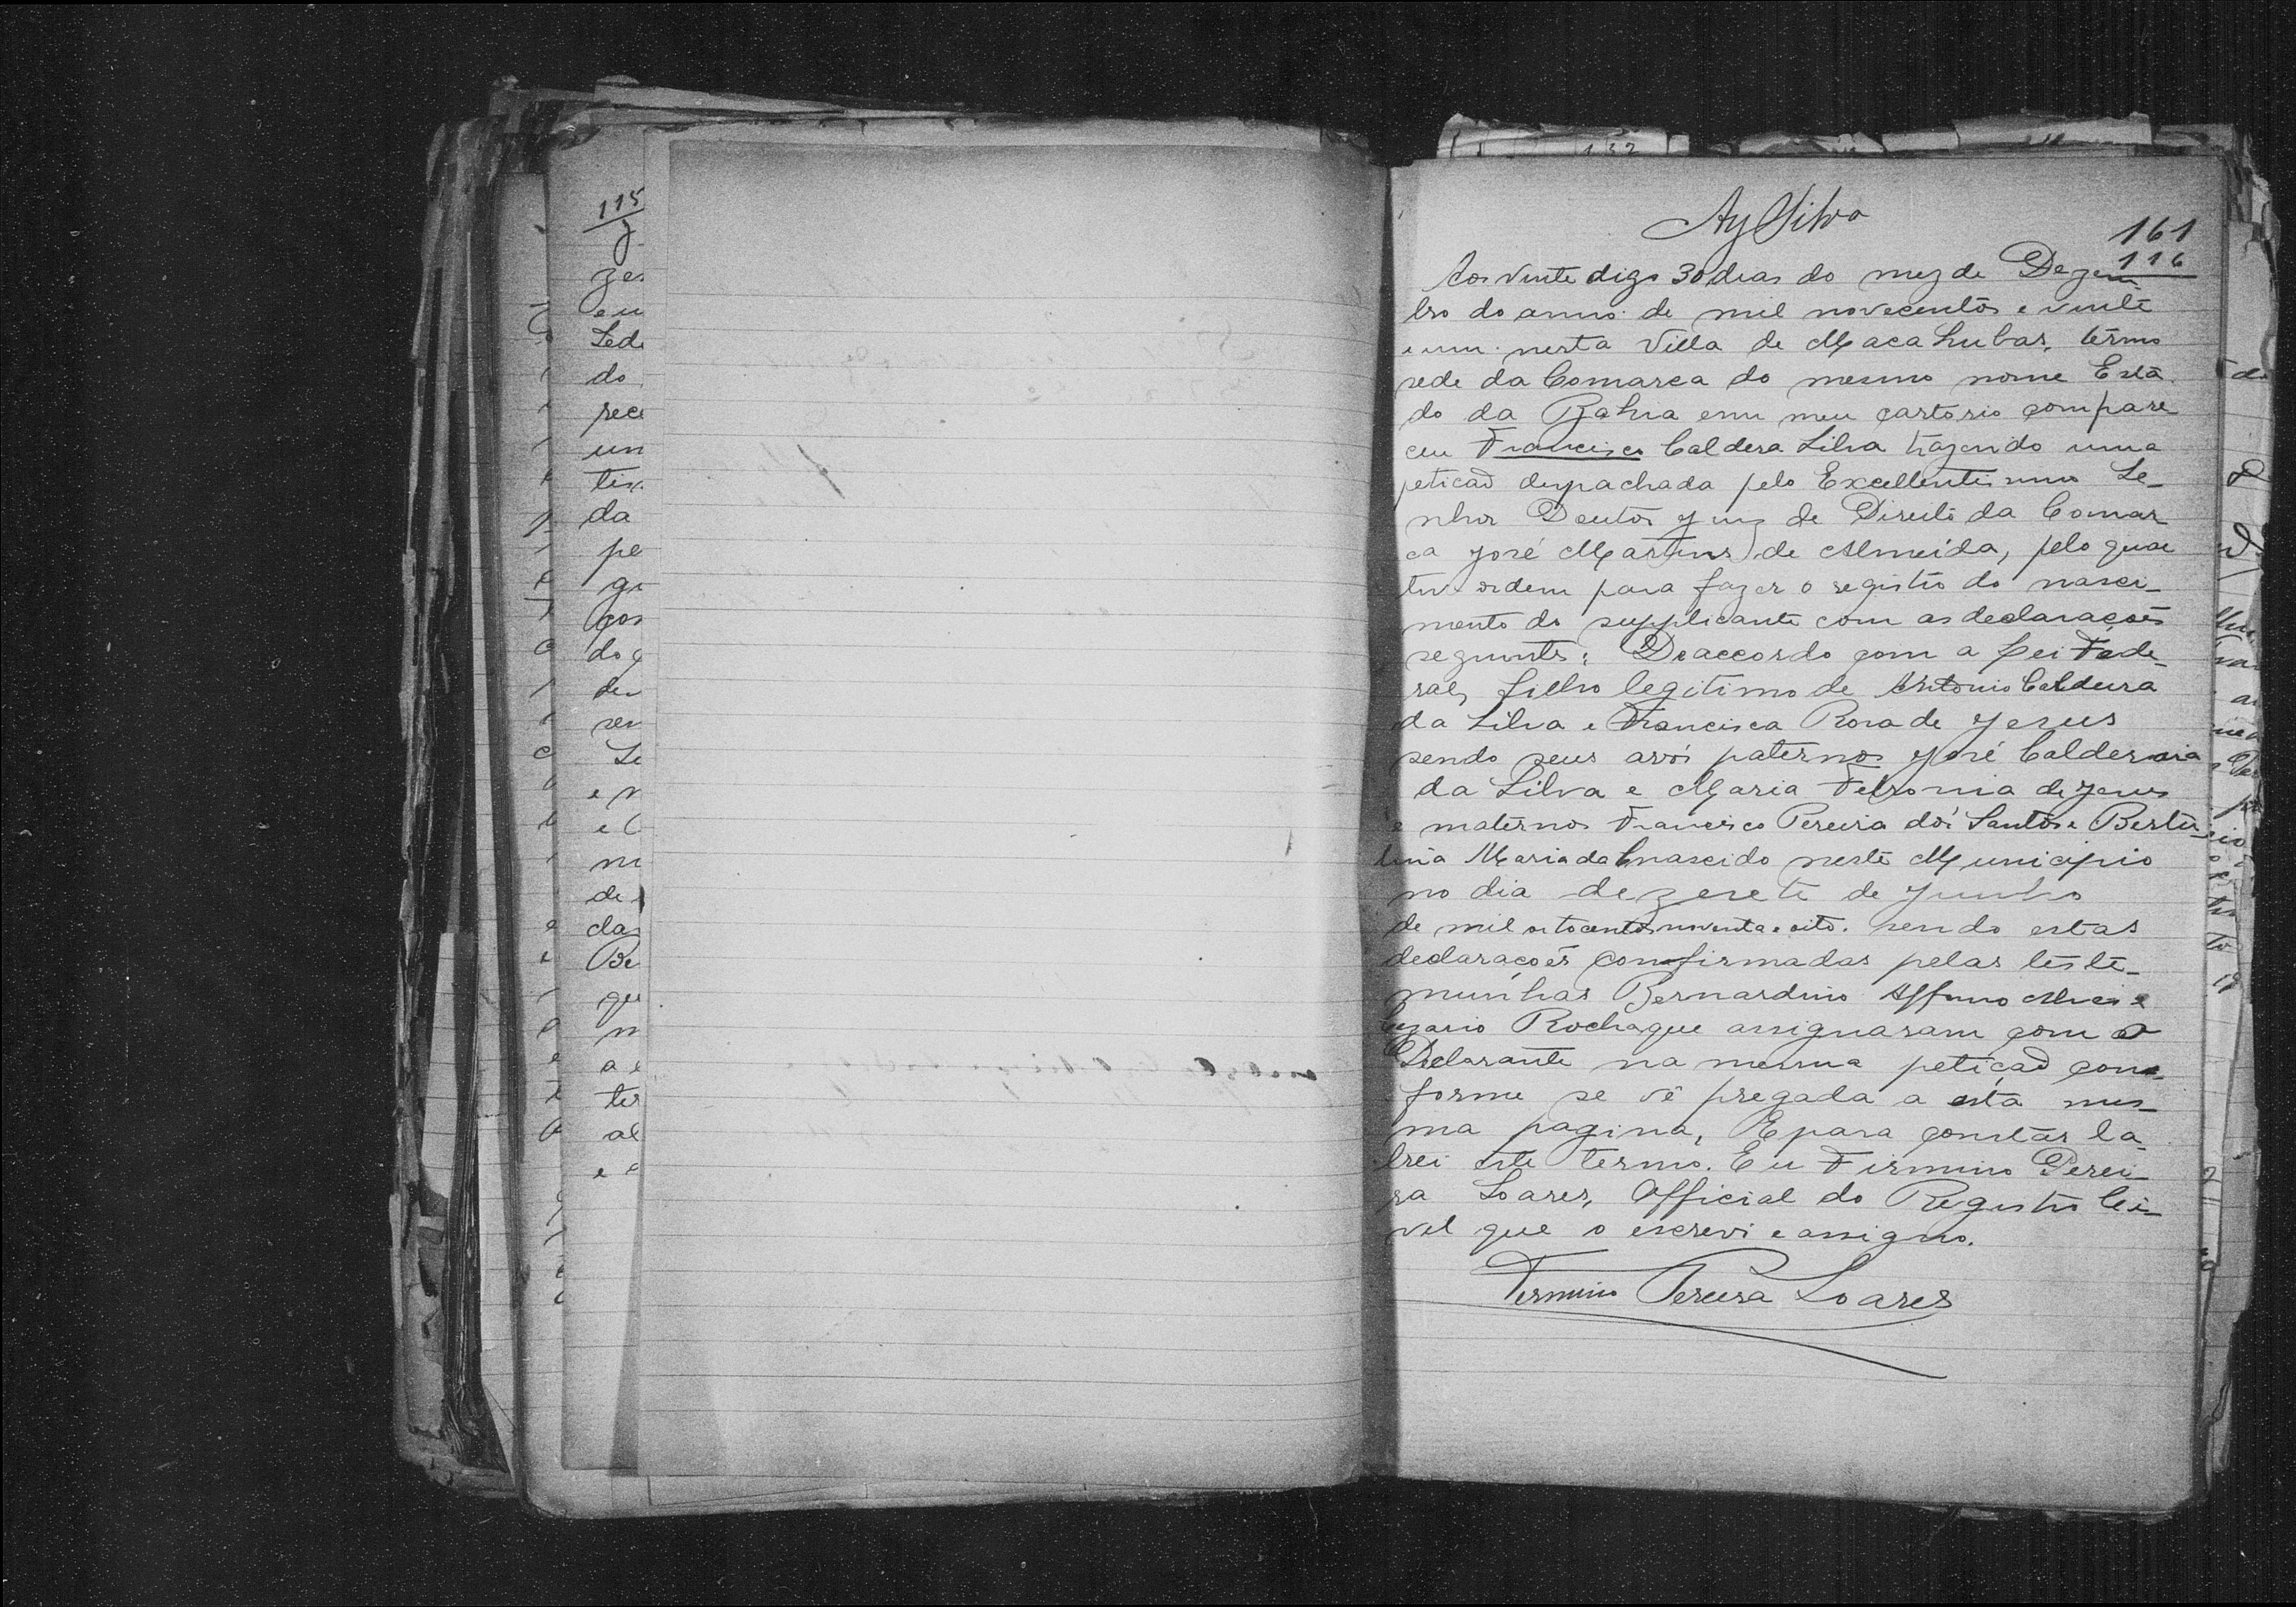 132
115
zes
eu
Sede
do
rece
um
da
pe
do
Se
de
Be
que
a e
ter
al
Ay Silva
161
116
Aos vinte digo 30 dias do mez de Dezem
bro do anno de mil novecentos e vinte
e um nesta Villa de Macahubas, termo
sede da Comarca do mesmo nome Esta
do da Bahia em meu cartorio compare
ceu Francisco Caldera Silva trazendo uma
peticaõ despachada pelo Excellentissimo Se-
nhor Doutor Juiz de Direito da Comar
ca José Martins de Almeida, pelo quae
tive ordem para fazer o registro do nasci-
mento do supplicante com as declarações
seguintes: De accordo com a Lei Fede-
ral, filho legitimo de Antonio Caldeira
da Silva e Francisca Rosa de Jesus
sendo seus avós paternos José Caldeira
da Silva e Maria de Jesus
e maternos Francisco Pereira dos Santos e Bertu
lina Maria da C nascido neste Municipio
no dia dezesete de Junho
de mil oitocentos noventa e oito. sendo estas
declarações confirmadas pelas teste-
munhas Bernardino Affonso e
Cezario Rocha que assignaram com o
Declarante na mesma petiçaõ con-
forme se vê pregada a esta mes-
ma pagina, E para constar la
vrei este termo. Eu Firmino Perei-
ra Soares, Official do Registro Ci-
vel que o escrevi e assigno.
Firmino Pereira Soares